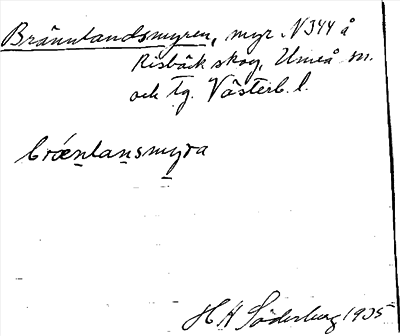 Brännlandsmyren, myr. N344 å
Risbäck skog, Umeå sn.
och tg. Västerb. l.
bræ̀nlansmyra
H H Söderberg 1935